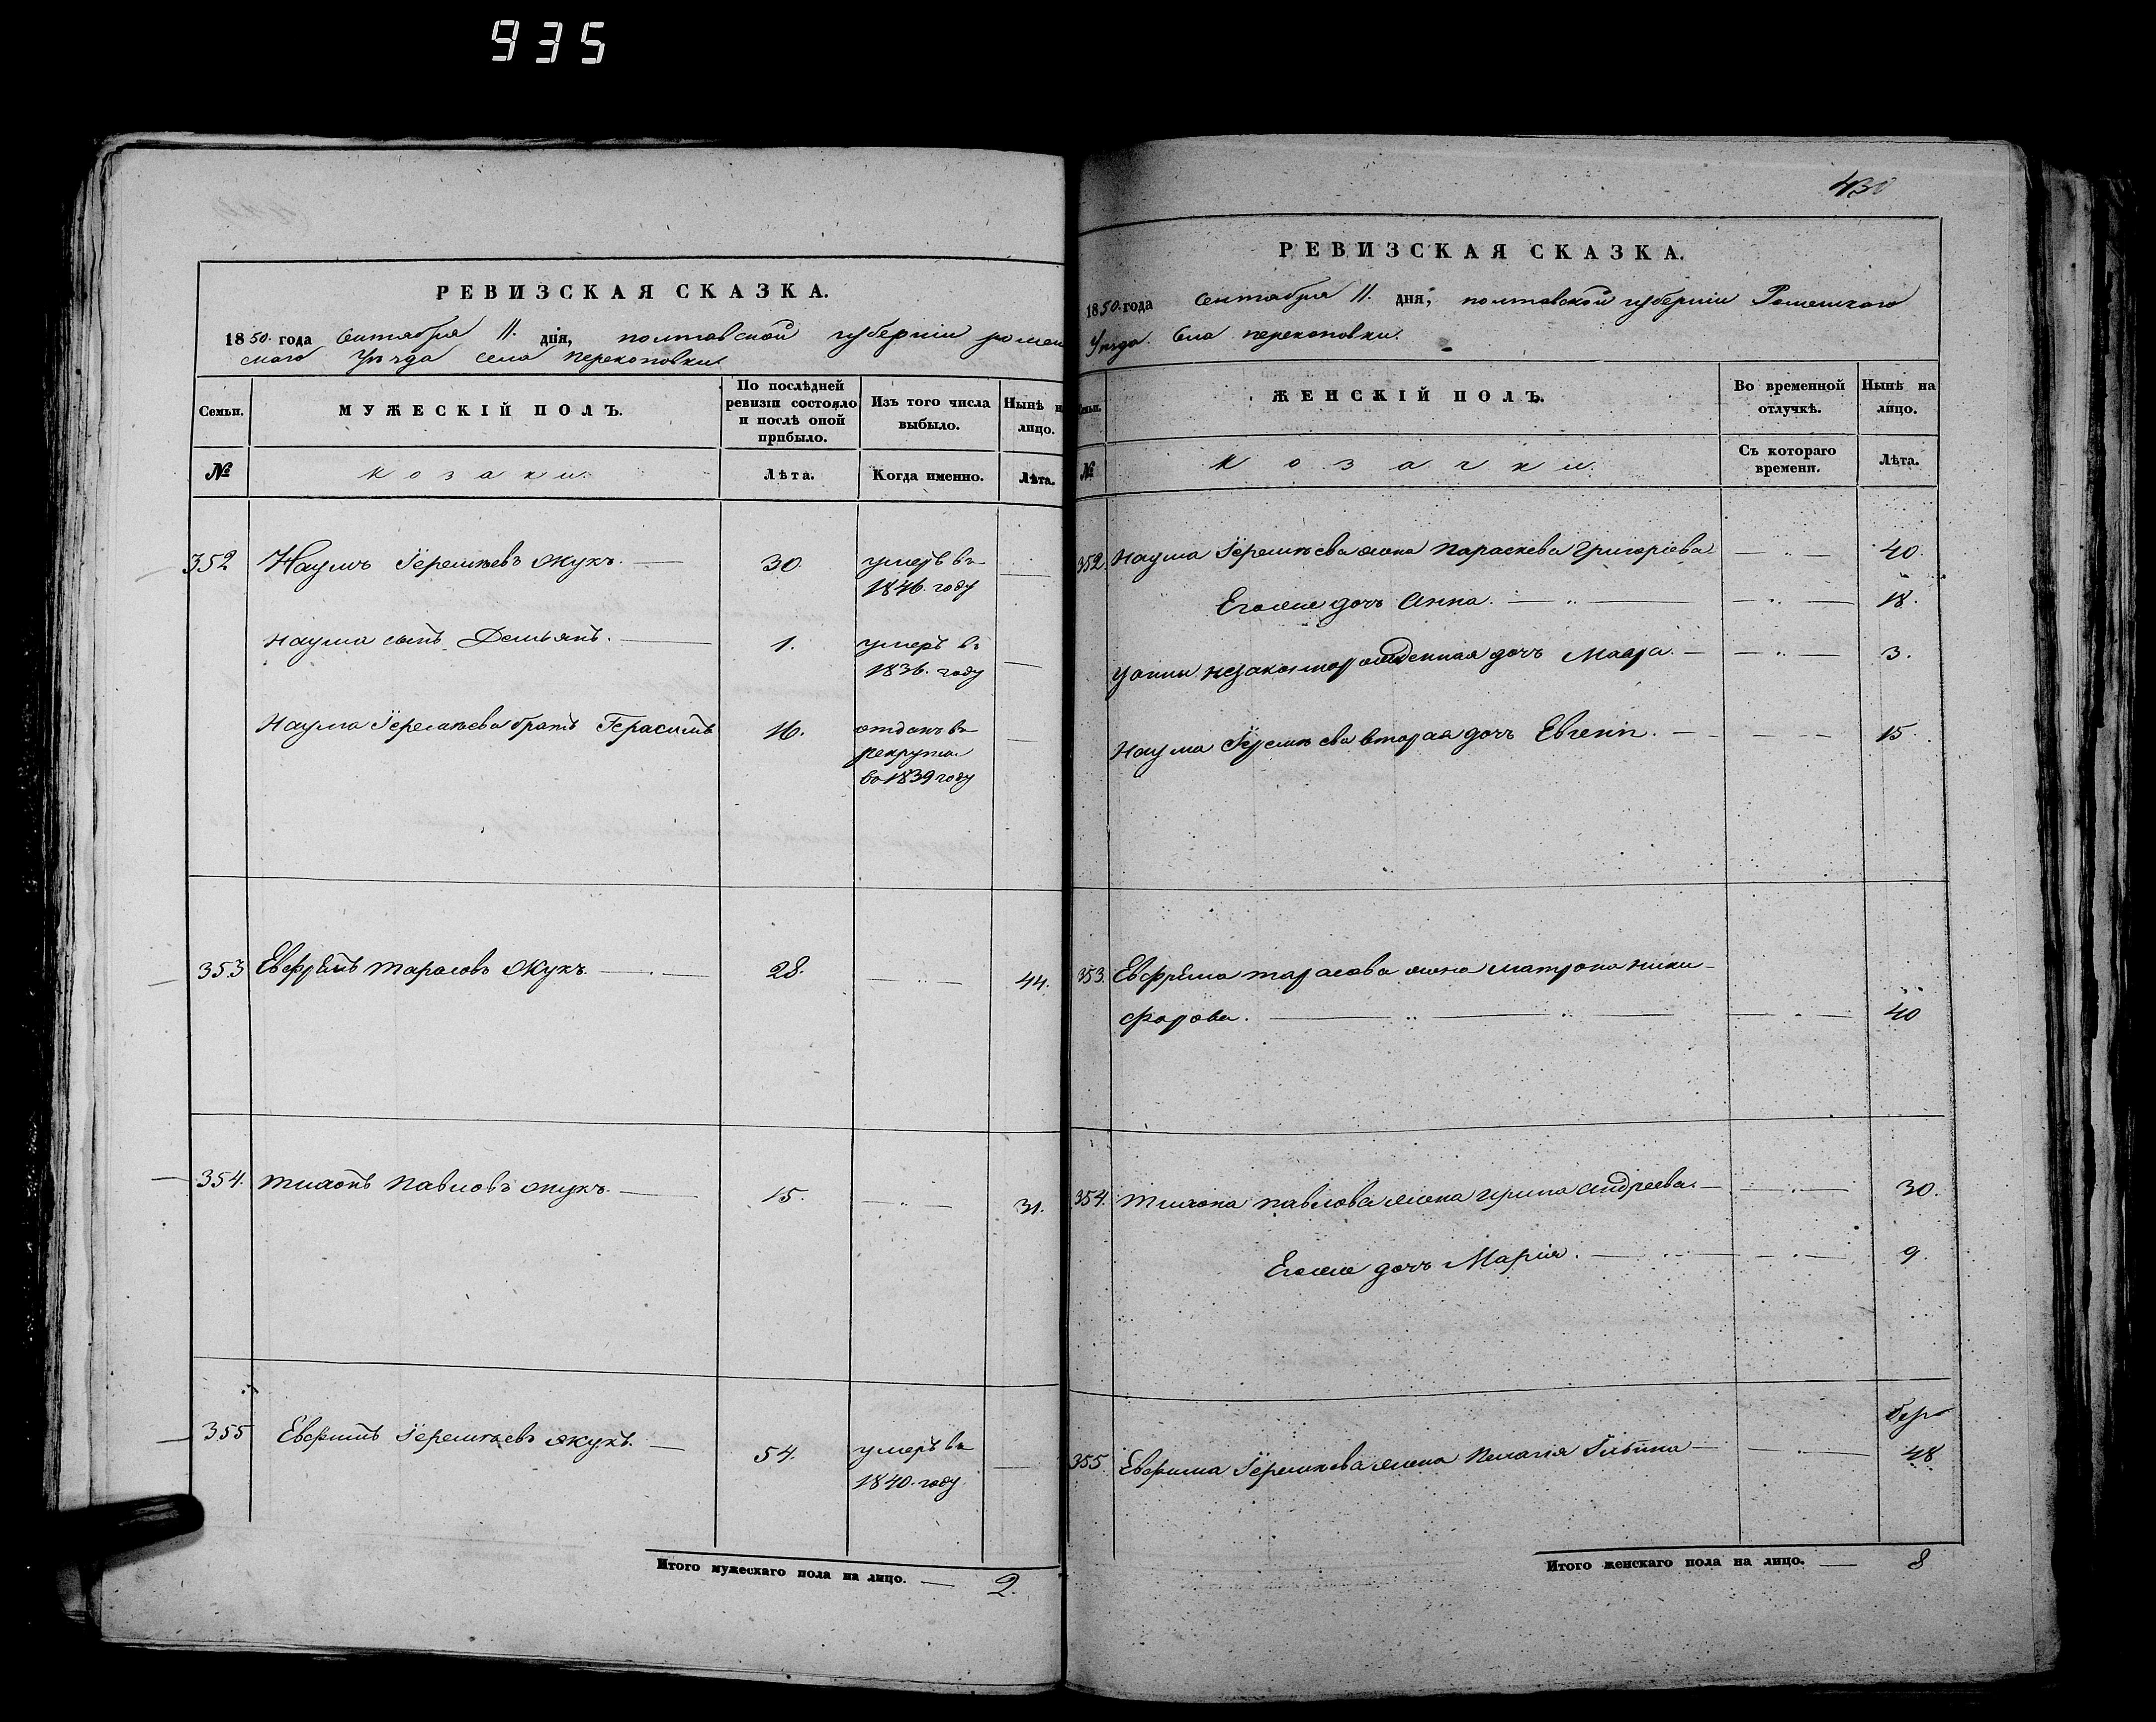 935
РЕВИЗСКАЯ СКАЗКА.
1850. года Сентября 11. дня, полтавской губерніи ромен
ского Уѣзда села перекоповки
Семьи.
МУЖЕСКІЙ ПОЛЪ.
По послѣдней ревизіи состояло и послѣ оной прибыло.
Изъ того числа выбыло.
Нынѣ н
лицо.
№
козаки.
Лѣта.
Когда именно.
Лѣта.
352 Наумъ Іеремѣевъ Жукъ. 30. умеръ въ
1846. году
Наума сынъ Демьянъ. 1. умеръ въ
1836. году
Наума Іеремѣева братъ Герасимъ 16. отданъ въ
рекруты
во 1839 году
353 Евфрѣмъ тарасовъ Жукъ. 28. 44.
354. тихонъ павловъ жукъ. 15. 31.
355 Евфимъ Іеремѣевъ жукъ. 54. умеръ въ
1840. году
Итого мужескаго пола на лицо. 2.
430
РЕВИЗСКАЯ СКАЗКА.
1850. года Сентября 11. дня, полтавской губерніи Роменского
Уѣзда. Села перекоповки.
ЖЕНСКІЙ ПОЛЪ.
Во временной отлучкѣ.
Нынѣ на лицо.
№
козачки.
Съ котораго времени.
Лѣта.
352. Наума Іеремѣева жена Параскева Григоріева 40.
Егоже дочь Анна. 18.
У анны незаконнорожденная дочь Мавра. 3.
Наума Іеремѣева вторая дочь Евгенія. 15.
353. Евфрѣма тарасова жена матрона ники-
форова. 40
354. Тихона павлова жена ирина андреева. 30.
Егоже дочь Марія. 9.
355. Евфима Іеремѣева жена Пелагія Ильина 48
Итого женскаго пола на лицо. 8